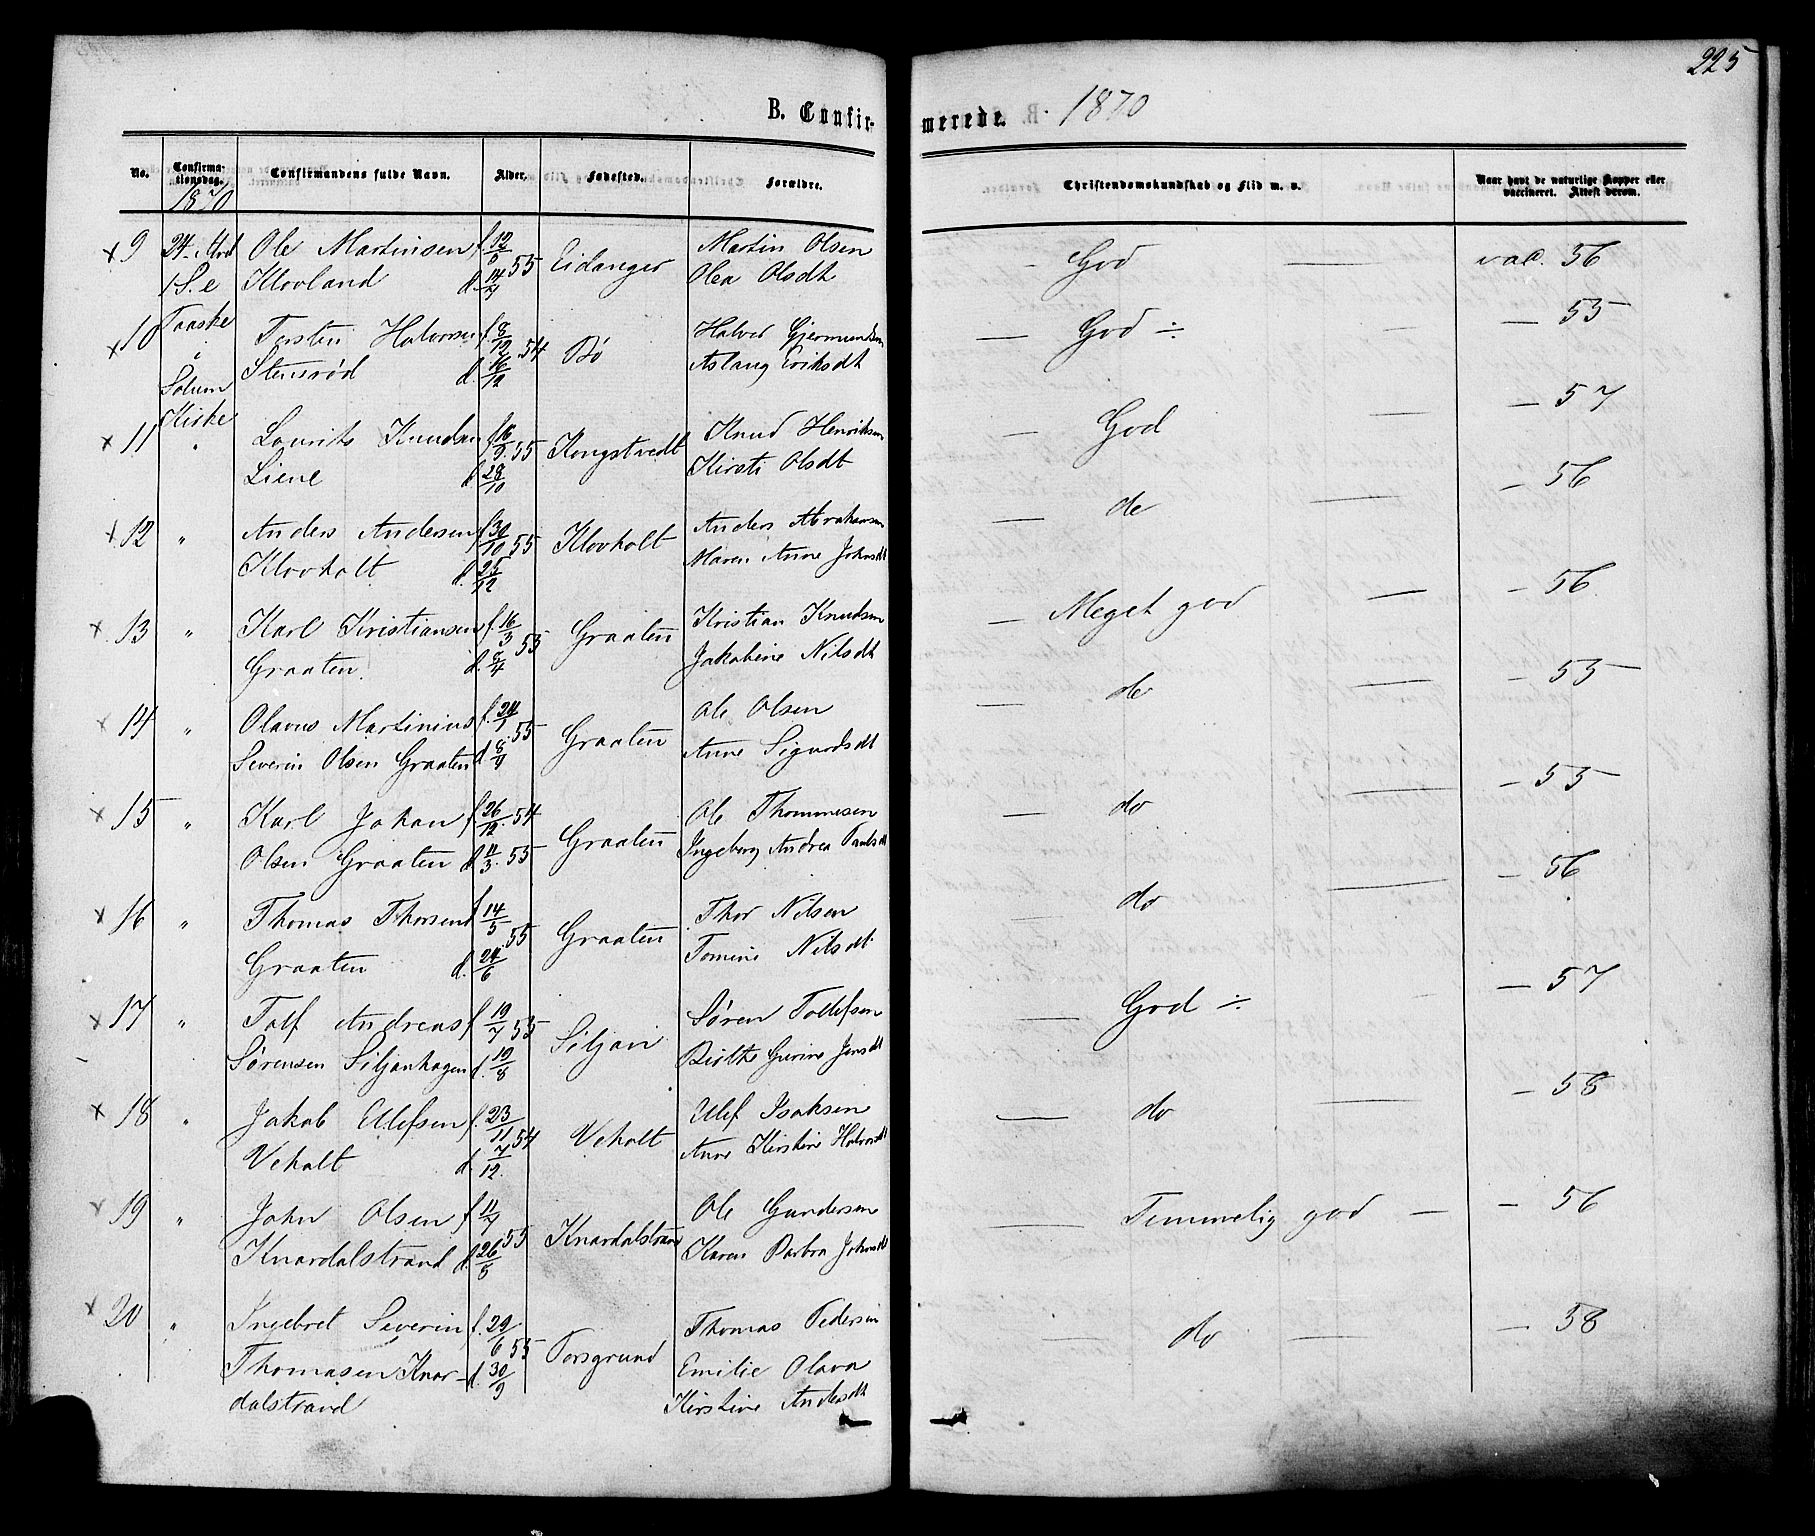 225
B. Confirmerede. 1870
No.
Confirmationsdag.
Confirmandens fulde Navn.
Alder.
Fødested.
Forældre.
Christendomskundskab og Flid m. v.
Naar havt de naturlige Kopper eller vaccineret. Attest derom.
1870
9 24 Ole Martinsen f. 12/5 Martin Olsen
1 S. e Klovland d. 14/7 55 Eidanger Olea Olsdt God vac. 56
Paaske
10 Torsten Halvorsen f. 8/12 Halvor Gjermundsen
Stensrød d. 16/12 54 Bø Aslaug Eriksdt — God ÷ — 55
Solum
Kirke
11 " Laurits Knudsen f. 16/9 Knud Henriksen
Liene d. 28/10 55 Kongstvedt Kirsti Olsdt — God — — 57
12 " Anders Andersen f. 30/10 Anders Abrahamsen
Klovholt d. 25/12 55 Klovholt Maren Anne Johnsdt — do — — 56
13 " Karl Kristiansen f. 16/3 Kristian Knudsen
Graaten d. 8/4 55 Graaten Jakobine Nilsdt — Meget god — — 56
14 " Olavus Martinius f. 24/1 Ole Olsen
Severin Olsen Graaten d. 8/4 55 Graaten Anne Sigurdsdt — do — — 55
15 " Karl Johan f. 26/12 54 Ole Thommesen
Olsen Graaten d. 11/3 55 Graaten Ingeborg Andrea Paulsdt — do — — 55
16 " Thomas Thorsen f. 14/5 Thor Nilsen
Graaten d. 24/6 55 Graaten Tomine Nilsdt — do — — 56
17 " Tolf Andreas f. 19/7 Søren Tollefsen
Sørensen Siljanhagen d. 19/8 55 Siljan Birthe Gurine Jensdt God ÷ — 57
18 " Jakob Ellefsen f. 23/11 Ellef Isaksen
Vekolt d. 7/12 54 Vekolt Anne Kirstine Halvorsdt — do — — 58
19 " John Olsen f. 11/7 Ole Gundersen
Knardalstrand d. 26/8 55 Knardalstrand Karen Barbra Johnsdt — Temmelig god — — 56
20 " Ingebret Severin f. 29/6 Thomas Pedersen
Thomasen Knar- d. 30/9 55 Porsgrund Emilie Olava — do — — 58
dalstrand Kirstine Andersdt